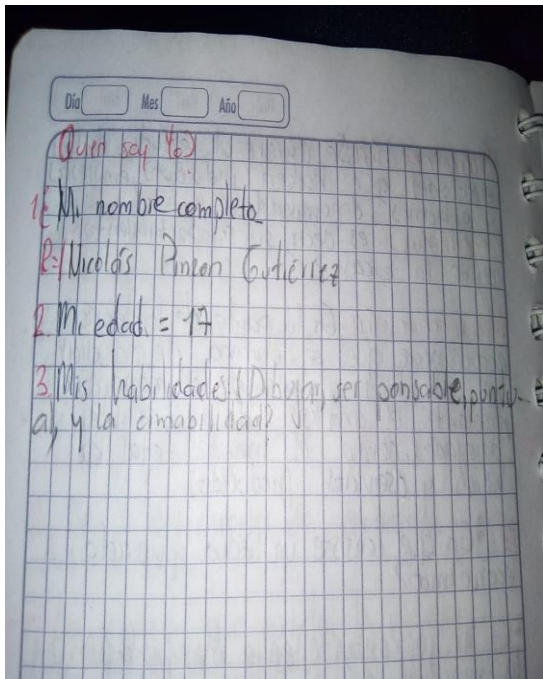 Día Mes Año
Quien soy Yo?
1: Mi nombre completo
R=/ Nicolás Pinzon Gutiérrez
2. Mi edad. = 17
3. Mis habilidades (Dibujar, ser ponsable, puntu-
al, y la amabilidad?